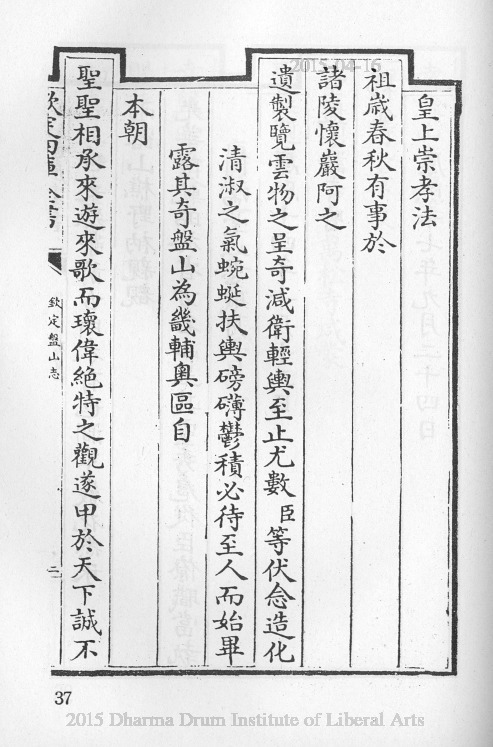 2015-04-16
皇上崇孝法
祖歳春秋有事於
諸陵懷巖阿之
遺製覽雲物之呈奇減衛輕輿至止尤數臣等伏念造化
清淑之氣蜿蜒扶輿磅礴鬱積必待至人而始畢
露其奇盤山為畿輔奧區自
本朝
聖聖相承來遊來歌而瓌偉絶特之觀遂甲於天下誠不
欽定四庫全書
欽定盤山志
二
37
2015 Dharma Drum Institute of Liberal Arts